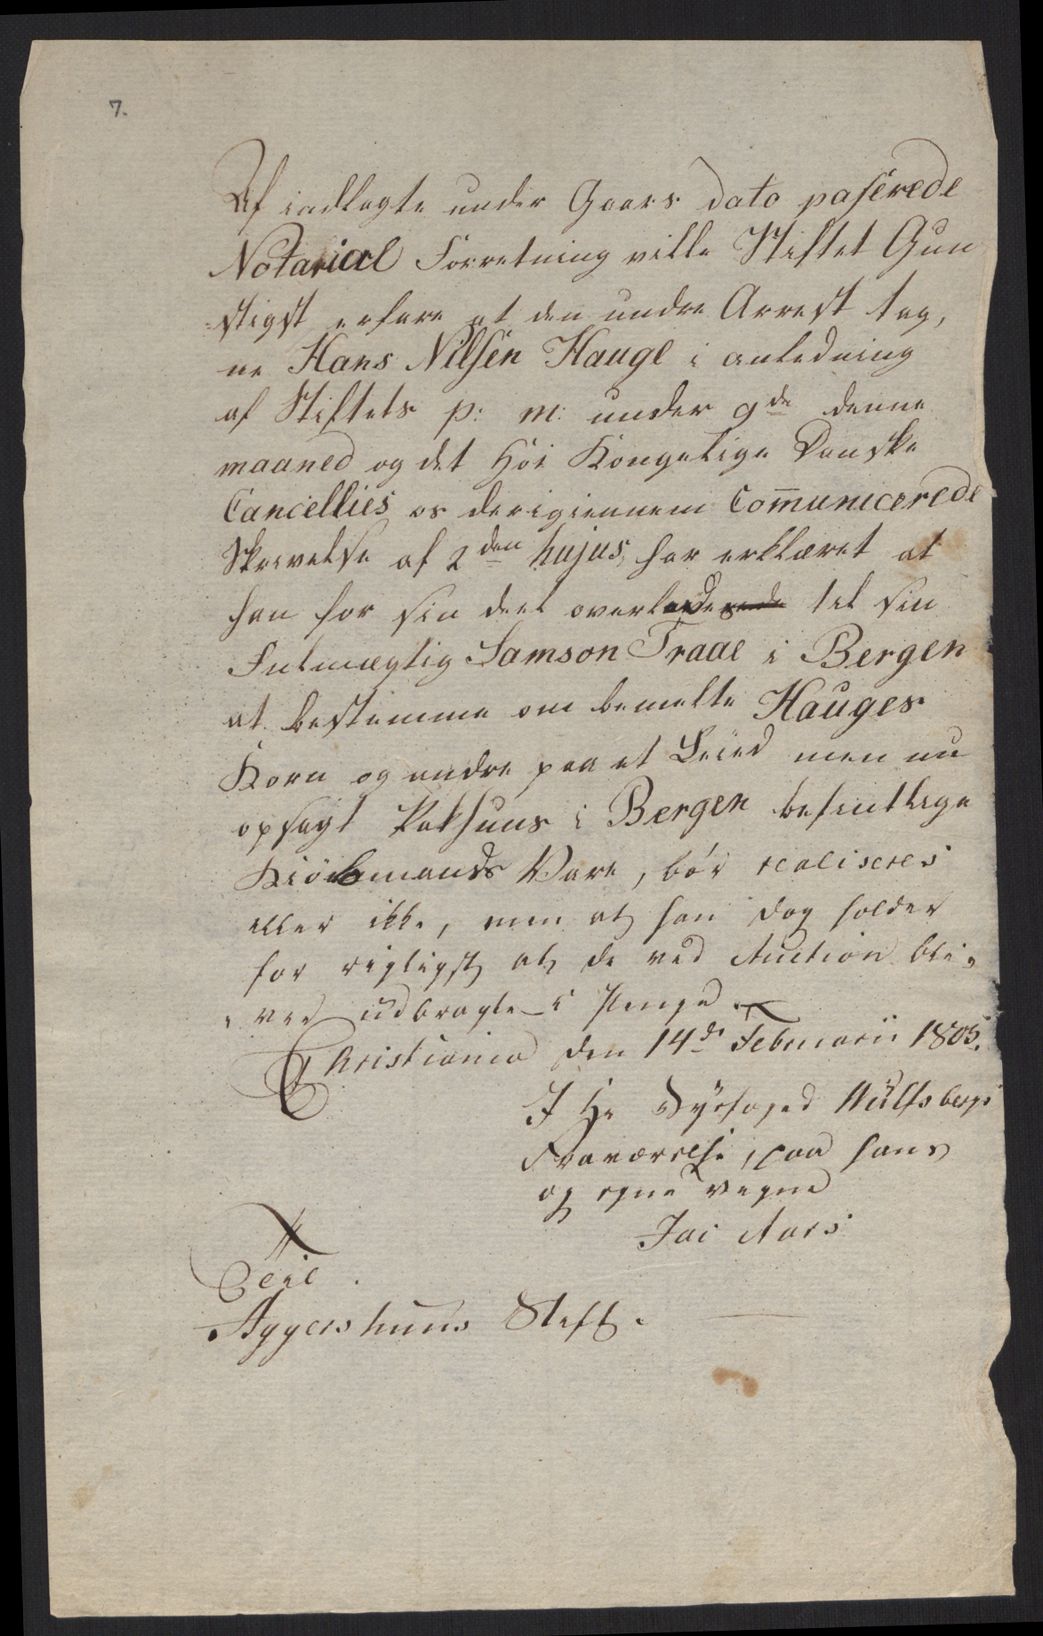 7.
Af indlagte under Gaars dato passerede
Notarial Forretning ville Stiftet Gun
-stigst erfare at den under Arrest tag,
ne Hans Nilsen Hauge i anledning
af Stiftets p: m: under 9de denne
maaned og det Höi Kongelige Danske
Cancellies os derigiennem Com̄unicerede
Skrivelse af 2den hujus, har erklæret at
han for sin deel overlader til sin
Fulmægtig Samson Traae i Bergen
at bestemme om bemelte Hauges
Korn og andre paa et Leied men nu
opsagt Pakhuus i Bergen befintlige
Kiöbmands Vare, bör realiseres
eller ikke, men at han dog holder
for rigtigst at de ved Auction bli-
-ver udbragte i Penge.
Christiania den 14de Februarii 1805.
I Hr Byefoged Wulfsbergs
Fraværelse, paa hans
og egne vegne
Jac Aars
Til
Aggershuus Stift.